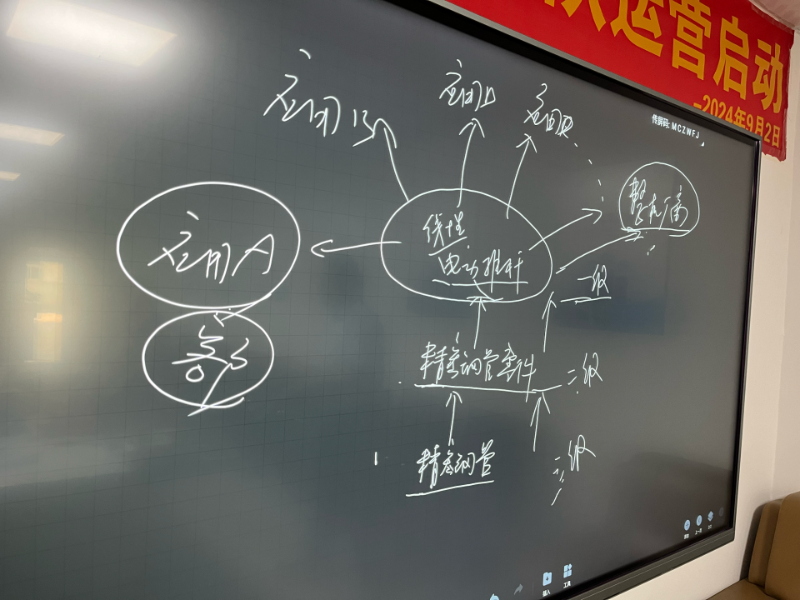 运营启动
-2024年9月2日
传屏码: MCZWFJ
应用B
应用D
应用A
线性
电动推杆
整机厂商
一级
精密钢管套件
二级
精密钢管
三级
插入
工具